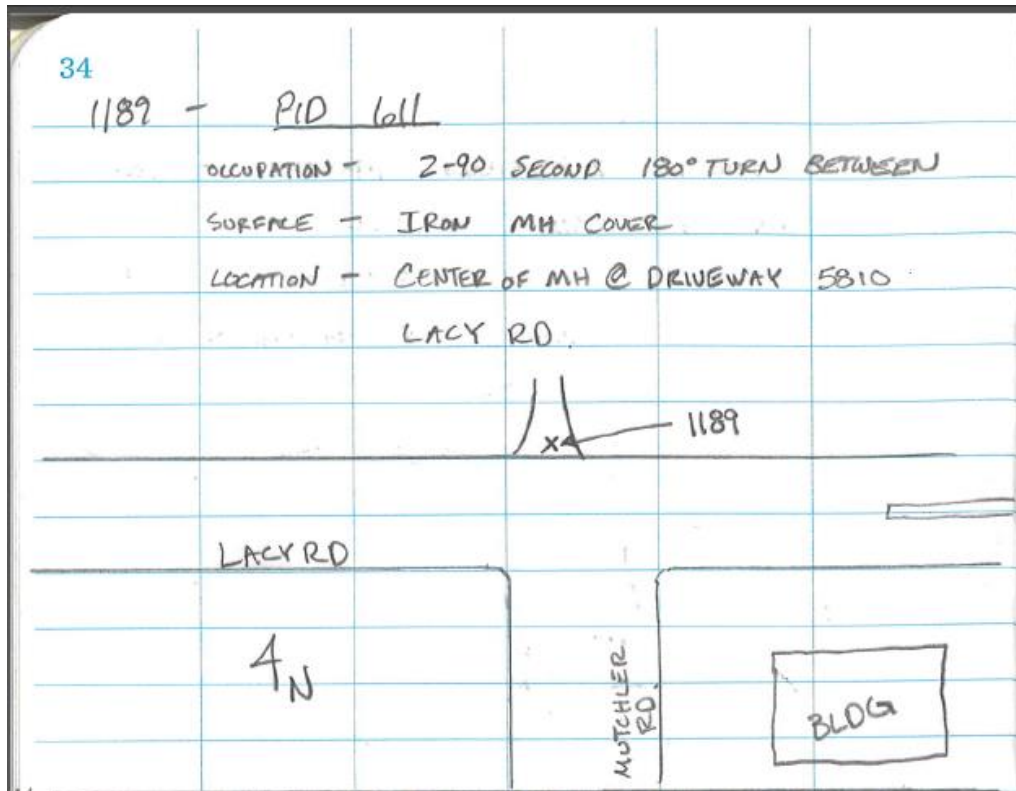 34
1189 - PID 611
OCCUPATION - 2-90 SECOND 180° TURN BETWEEN
SURFACE - IRON MH COVER
LOCATION - CENTER OF MH @ DRIVEWAY 5810
LACY RD.
1189
LACY RD
N
MUTCHLER
RD.
BLDG